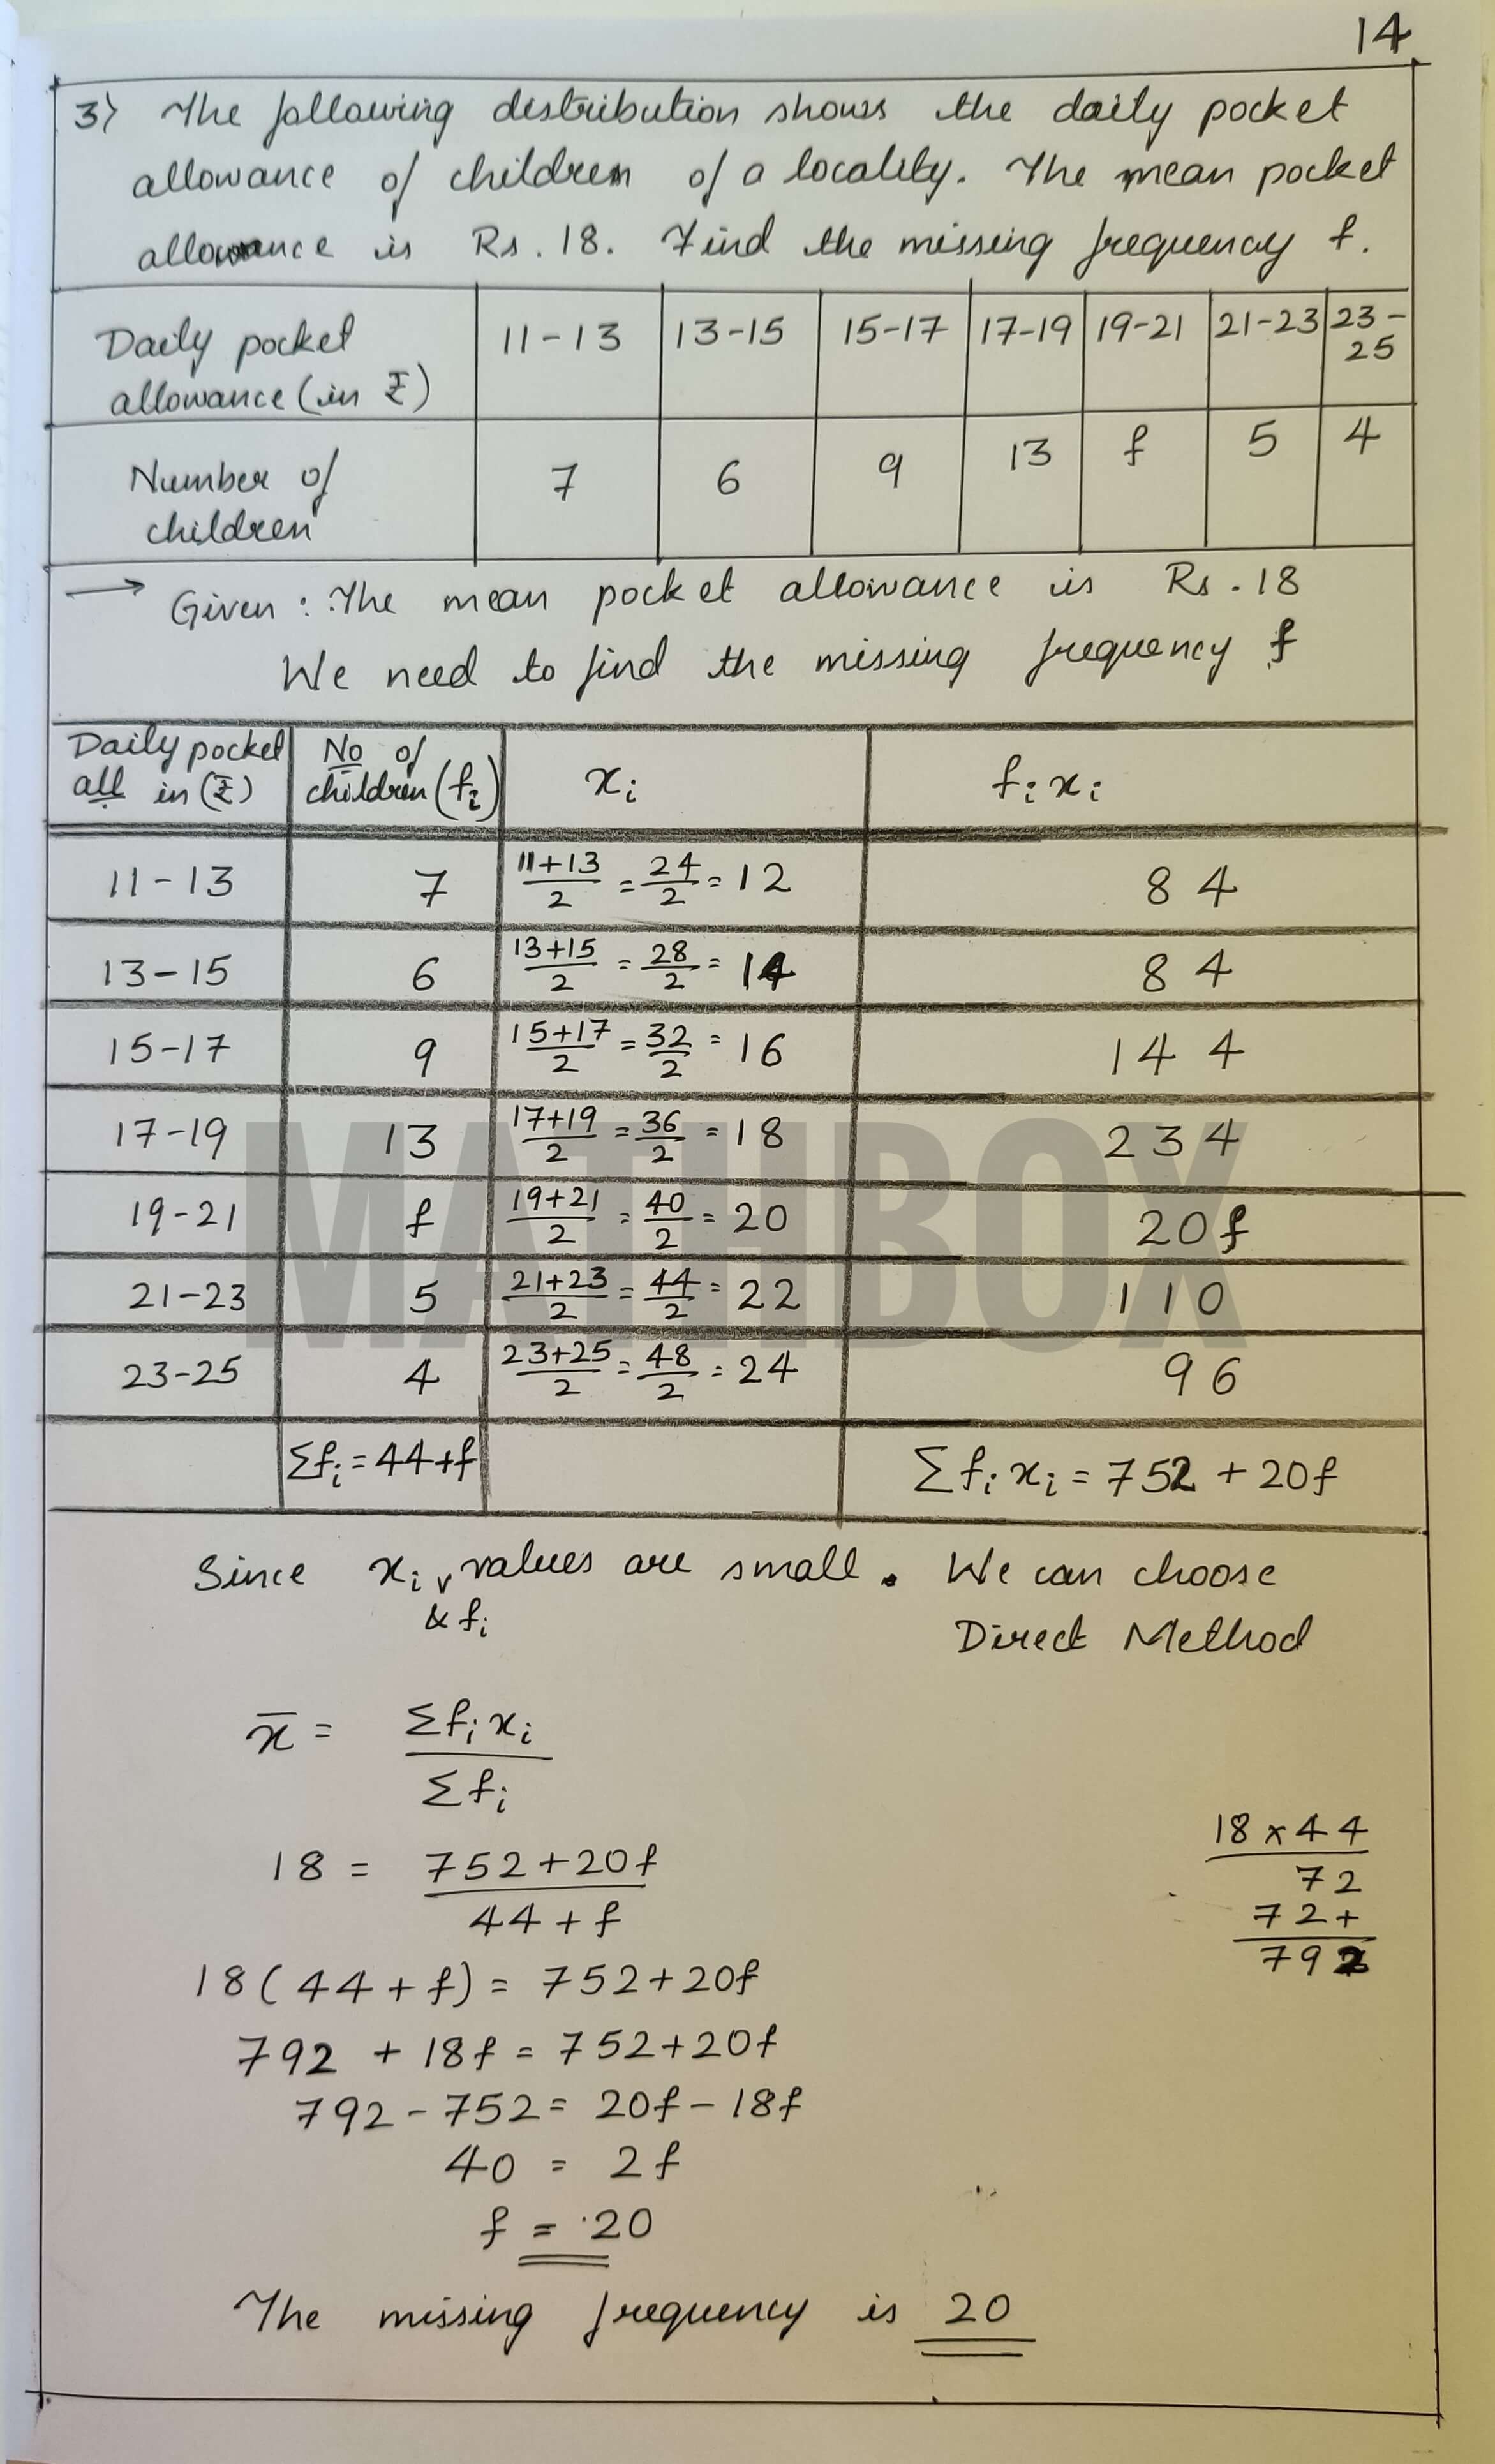 14
3) The following distribution shows the daily pocket
allowance of children of a locality. The mean pocket
allowance is Rs. 18. Find the missing frequency f.
Daily pocket allowance (in ₹) | 11-13 | 13-15 | 15-17 | 17-19 | 19-21 | 21-23 | 23-25
Number of children | 7 | 6 | 9 | 13 | f | 5 | 4
→ Given: The mean pocket allowance is Rs. 18
We need to find the missing frequency f
Daily pocket all in (₹) | No of children (fi) | xi | fixi
11-13 | 7 | 11+13/2 = 24/2 = 12 | 84
13-15 | 6 | 13+15/2 = 28/2 = 14 | 84
15-17 | 9 | 15+17/2 = 32/2 = 16 | 144
17-19 | 13 | 17+19/2 = 36/2 = 18 | 234
19-21 | f | 19+21/2 = 40/2 = 20 | 20f
21-23 | 5 | 21+23/2 = 44/2 = 22 | 110
23-25 | 4 | 23+25/2 = 48/2 = 24 | 96
Σfi = 44+f | Σfixi = 752 + 20f
MATHBOX
Since xi & fi values are small. We can choose
Direct Method
x̄ = Σfixi / Σfi
18 = 752+20f / 44+f
18(44+f) = 752+20f
792 + 18f = 752+20f
792-752 = 20f-18f
40 = 2f
f = 20
18×44
72
72+
792
The missing frequency is 20